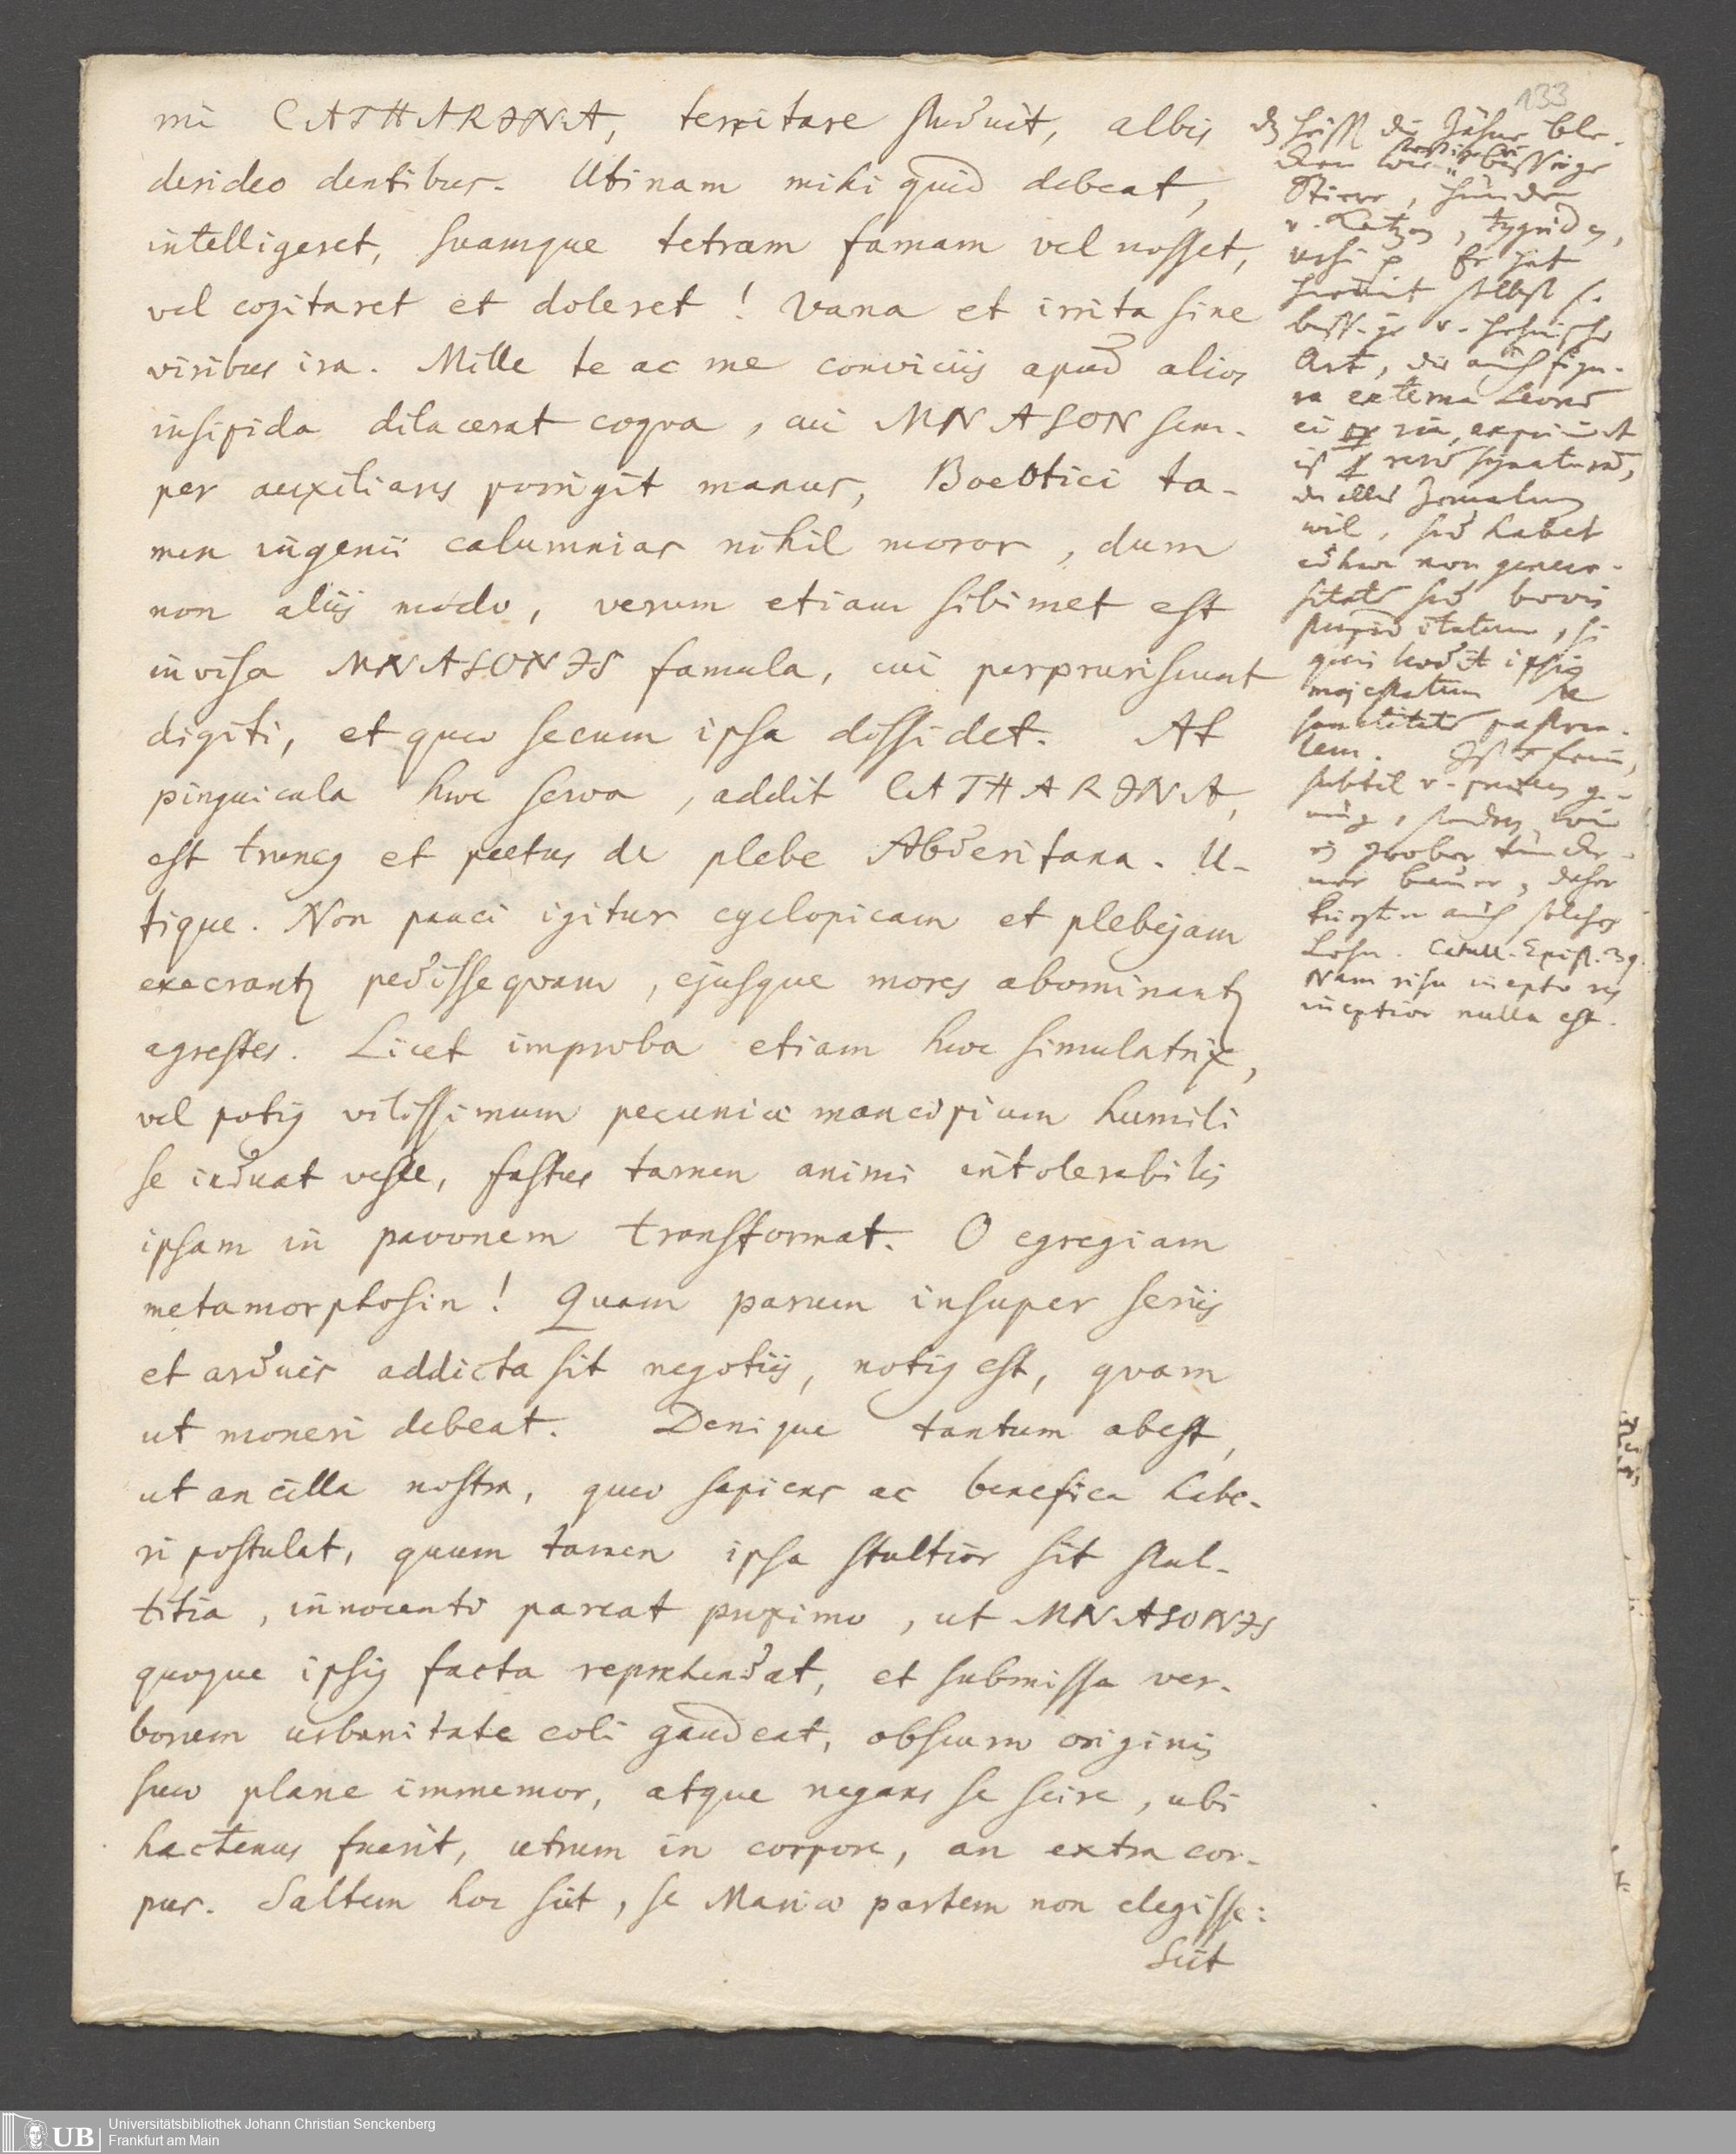 133
mi CATHARINA, territare studuit, albis
derideo dentibus. Utinam mihi quid debeat,
intelligeret, suamque tetram famam vel nosset,
vel cogitaret et doleret! Vana et irrita sine
viribus ira. Mille te ac me conviciis apud alios
insipida dilacerat coqva, cui MNASON sem-
per auxiliares porrigit manus, Boeotici ta-
men ingenii calumnias nihil moror, dum
non aliis modo, verum etiam sibimet est
invisa MNASONIS famula, cui perpruriscunt
digiti, et quae secum ipsa dissidet. At
pinguicula haec serva, addit CATHARINA,
est truncus et pectus de plebe Abderitana. U-
tique. Non pauci igitur cyclopicam et plebejam
execrantur pedissequam, ejusque mores abominantur
agrestes. Licet improba etiam haec simulatrix,
vel potius vilissimum pecuniae mancipium humili
se induat veste, fastus tamen animi intolerabilis
ipsam in pavonem transformat. O egregiam
metamorphosin! Quam parum insuper seriis
et arduis addicta sit negotiis, notius est, quam
ut moneri debeat. Denique tantum abest,
ut ancilla nostra, quae sapiens ac benefica habe-
ri postulat, quum tamen ipsa stultior sit stul-
titia, innocenti parcat proximo, ut MNASONIS
quoque ipsius facta reprehendat, et submissa ver-
borum urbanitate coli gaudeat, obscurae originis
suae plane immemor, atque negans se scire, ubi
hactenus fuerit, utrum in corpore, an extra cor-
pus. Saltem hoc sciit, se Mariae partem non elegisse:
Sciit
heist die Zähne ble-
Stiere, Hunde
v. Katzen, tygrides,
ursi Er hat
hiemit selbst
Art, die auch figu-
ra externa
wil, sed habet
non genero-
sitatem sed bovis
stupiditatem, si
quis laedit ipsius
majestatem
sanctitatem pastora-
lem. Ist fein,
subtil v.
grober
bauer, daher
auch solchen
Lohn. Catull. Epist. 39.
Nam risu inepto res
ineptior nulla est.
Universitätsbibliothek Johann Christian Senckenberg
Frankfurt am Main
UB